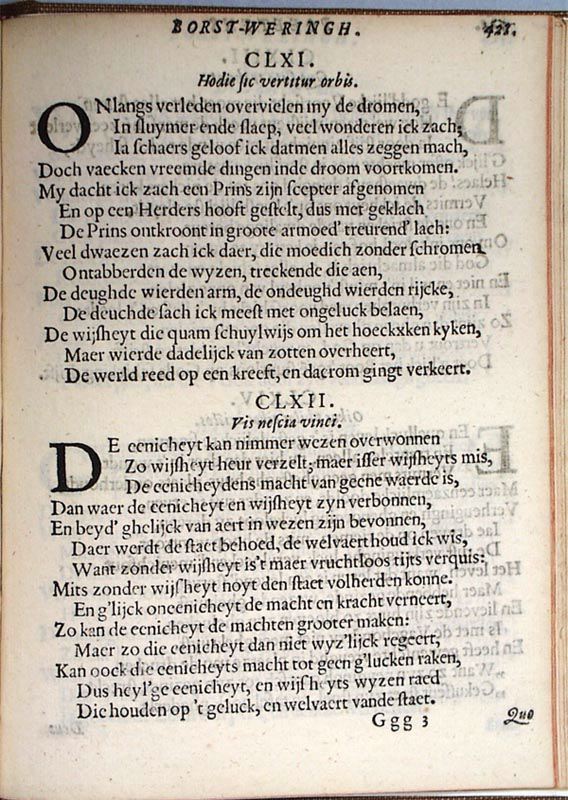 BORST-WERINGH. 421.
CLXI.
Hodie sic vertitur orbis.
ONlangs verleden overvielen my de dromen,
In sluymer ende slaep, veel wonderen ick zach;
Ia schaers geloof ick datmen alles zeggen mach,
Doch vaecken vreemde dingen inde droom voortkomen.
My dacht ick zach een Prins zijn scepter afgenomen
En op een Herders hooft gestelt, dus met geklach
De Prins ontkroont in groote armoed' treurend' lach:
Veel dwaezen zach ick daer, die moedich zonder schromen
Ontabberden de wyzen, treckende die aen,
De deughde wierden arm, de ondeughd wierden rijcke,
De deuchde sach ick meest met ongeluck belaen,
De wijsheyt die quam schuylwijs om het hoeckxken kyken,
Maer wierde dadelijck van zotten overheert,
De werld reed op een kreeft, en daerom gingt verkeert.
CLXII.
Vis nescia vinci.
DE eenicheyt kan nimmer wezen overwonnen
Zo wijsheyt heur verzelt; maer isser wijsheyts mis,
De eenicheydens macht van geene waerde is,
Dan waer de eenicheyt en wijsheyt zyn verbonnen,
En beyd' ghelijck van aert in wezen zijn bevonnen,
Daer werdt de staet behoed, de welvaert houd ick wis,
Want zonder wijsheyt is't maer vruchtloos tijts verquis:
Mits zonder wijsheyt noyt den staet volherden konne.
En g'lijck oneenicheyt de macht en kracht verneert,
Zo kan de eenicheyt de machten grooter maken:
Maer zo die eenicheyt dan niet wyz'lijck regeert,
Kan oock die eenicheyts macht tot geen g'lucken raken,
Dus heyl'ge eenicheyt, en wijsheyts wyzen raed
Die houden op 't geluck, en welvaert vande staet.
Ggg 3 Quo